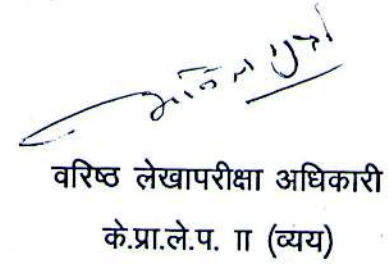 वरिष्ठ लेखापरीक्षा अधिकारी
के.प्रा.ले.प. II (व्यय)